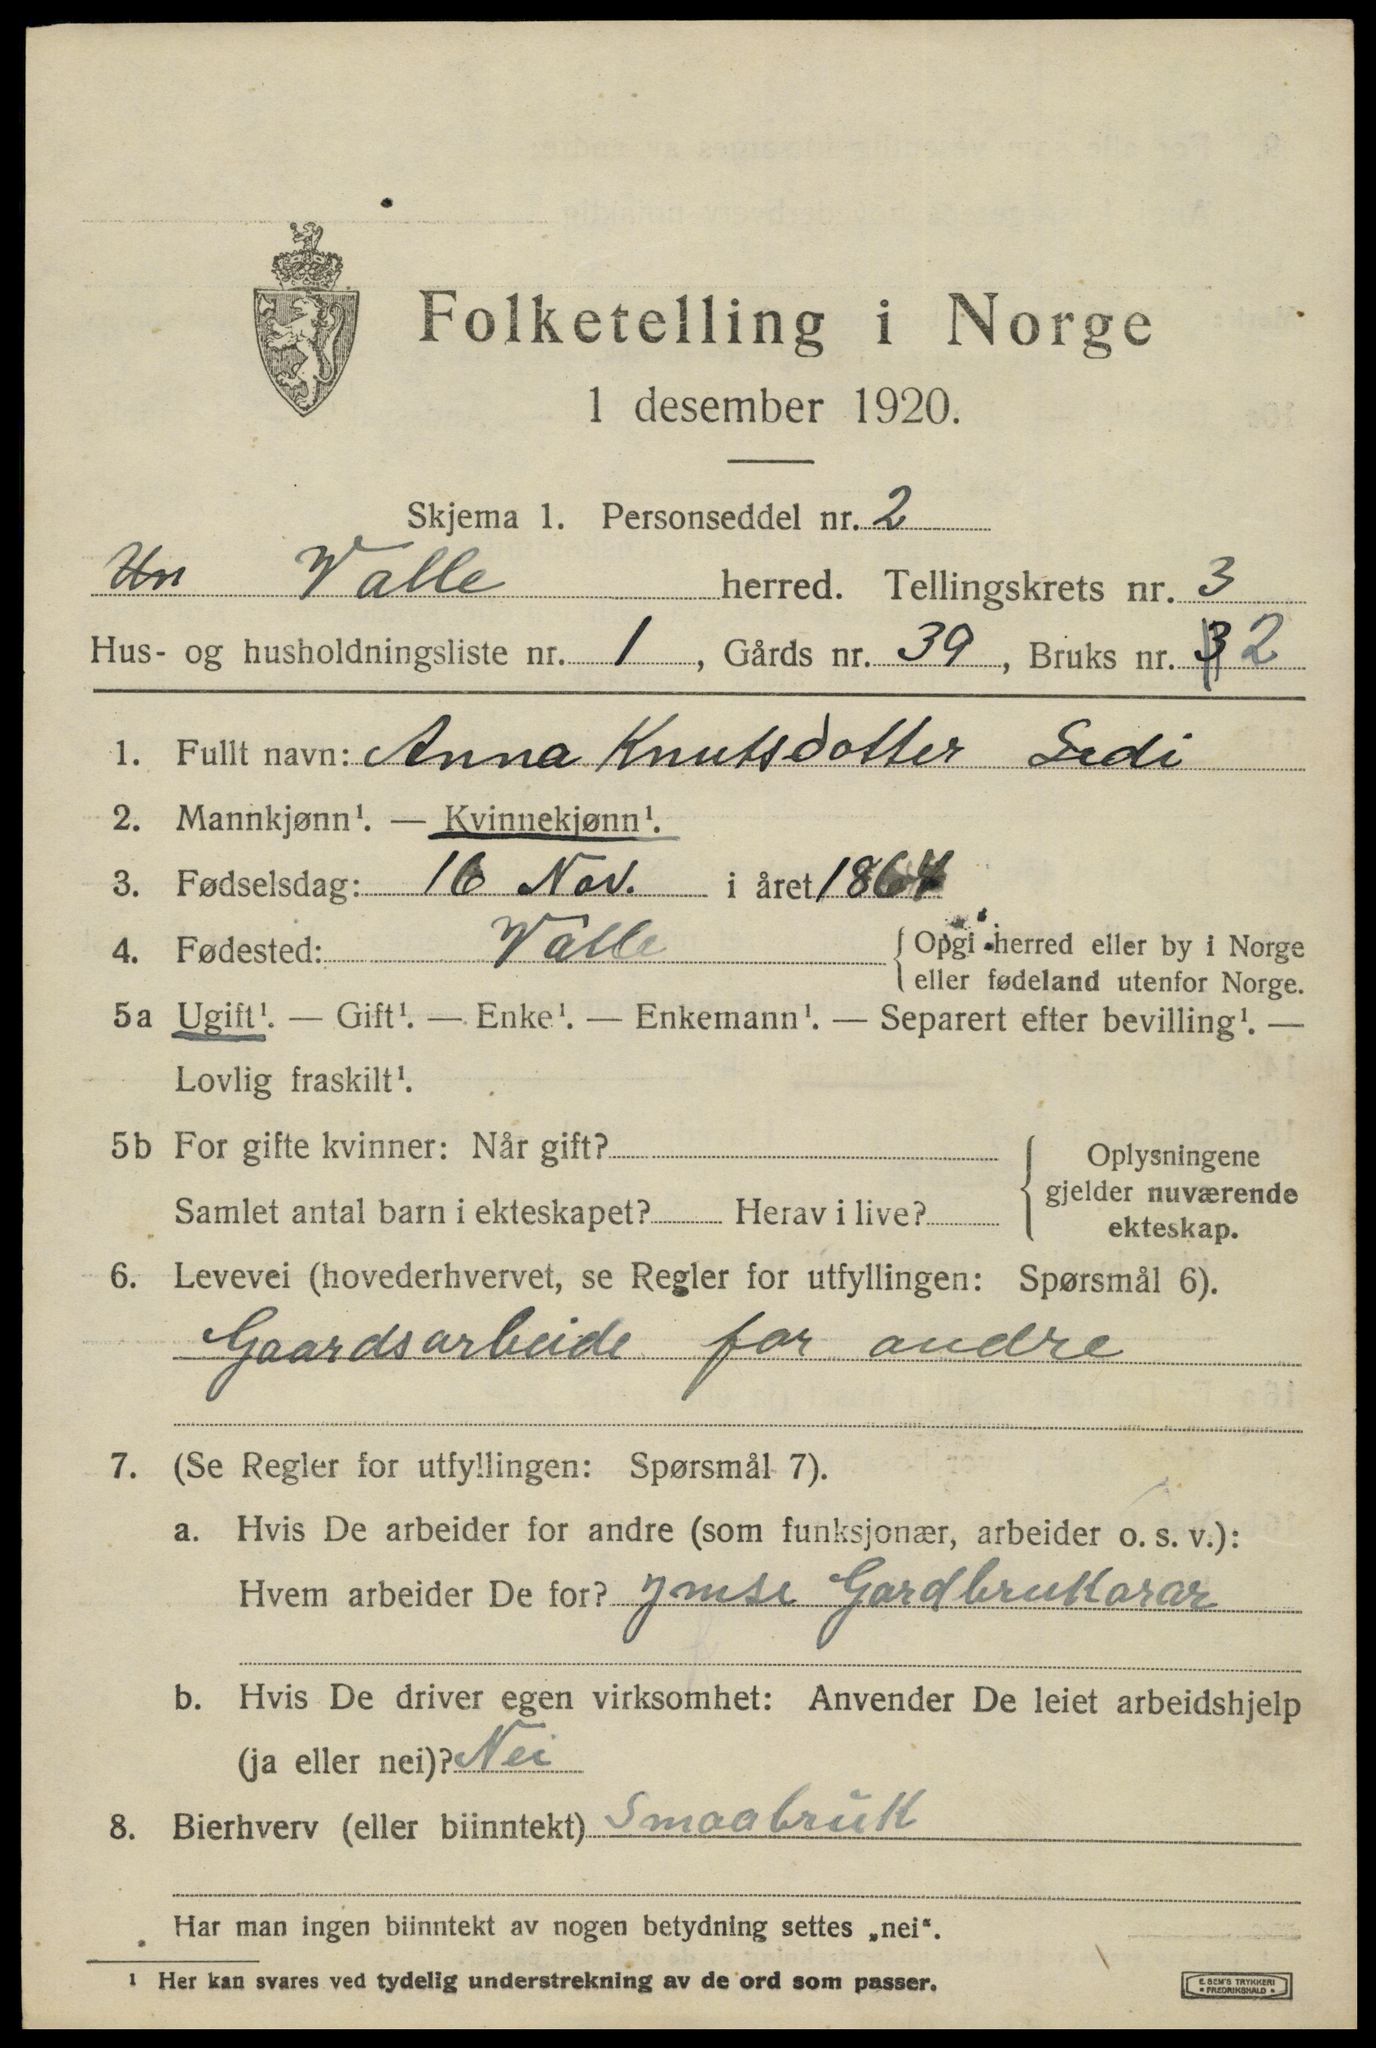 Folketelling i Norge
1 desember 1920.
Skjema 1. Personseddel nr. 2
Valle herred. Tellingskrets nr. 3
Hus- og husholdningsliste nr. 1, Gårds nr. 39, Bruks nr. 3 2
1. Fullt navn: Anna Knutsdotter
2. Mannkjønn¹. — Kvinnekjønn¹.
3. Fødselsdag: 16 Nov. i året 1864
4. Fødested: Valle {Opgi herred eller by i Norge
eller fødeland utenfor Norge.
5a Ugift¹. — Gift¹. — Enke¹. — Enkemann¹. — Separert efter bevilling¹. —
Lovlig fraskilt¹.
5b For gifte kvinner: Når gift?
Samlet antal barn i ekteskapet? Herav i live?
{Oplysningene
gjelder nuværende
ekteskap.
6. Levevei (hovederhvervet, se Regler for utfyllingen: Spørsmål 6).
Gaardsarbeide for andre
7. (Se Regler for utfyllingen: Spørsmål 7).
a. Hvis De arbeider for andre (som funksjonær, arbeider o. s. v.):
Hvem arbeider De for? Ymse Gardbrukarar
b. Hvis De driver egen virksomhet: Anvender De leiet arbeidshjelp
(ja eller nei)? Nei
8. Bierhverv (eller biinntekt) Smaabruk
Har man ingen biinntekt av nogen betydning settes „nei“.
¹ Her kan svares ved tydelig understrekning av de ord som passer.
E. SEM'S TRYKKERI
• FREDRIKSHALD •